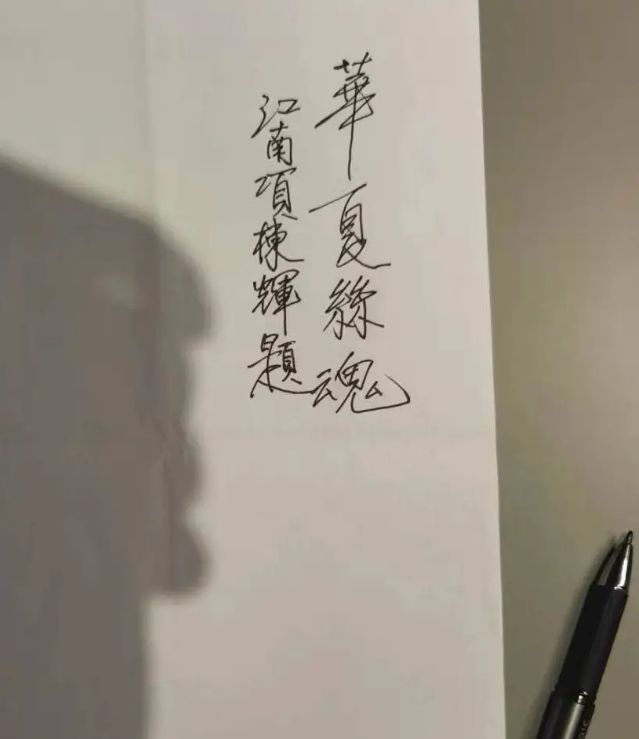 華夏絲魂
江南項棟輝題